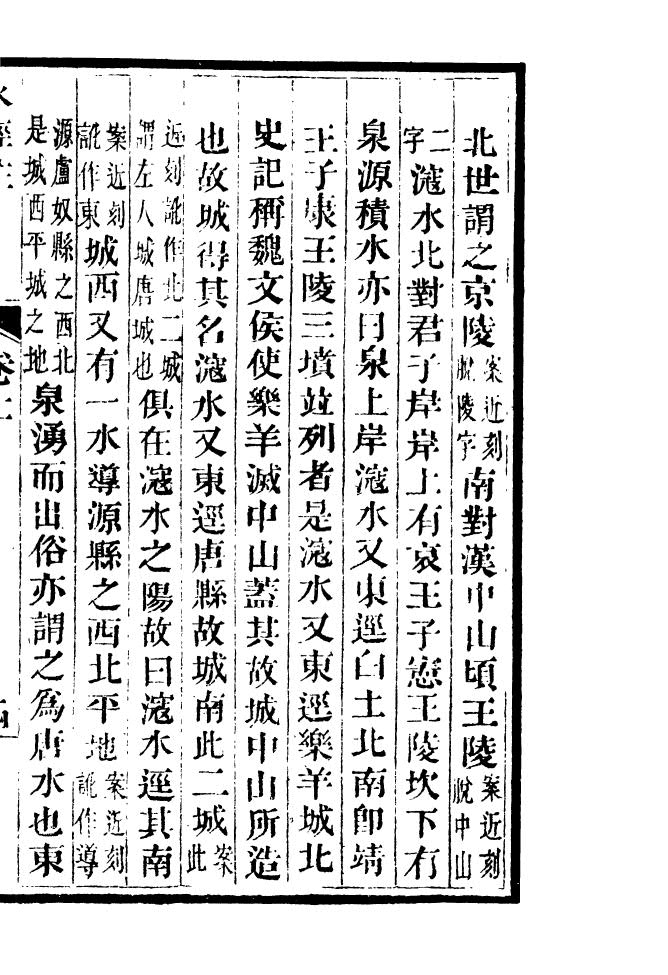 北世謂之京陵案近刻脫陵字南對漢中山頃王陵案近刻脫中山
二字滱水北對君子岸岸上有哀王子憲王陵坎下有
泉源積水亦曰泉上岸滱水又東逕白土北南卽靖
王子康王陵三墳並列者是滱水又東逕樂羊城北
史記稱魏文侯使樂羊滅中山蓋其故城中山所造
也故城得其名滱水又東逕唐縣故城南此二城案此
近刻訛作北二城謂左人城唐城也俱在滱水之陽故曰滱水逕其南
案近刻訛作東城西又有一水導源縣之西北平地案近刻訛作導
源盧奴縣之西北是城西平城之地泉湧而出俗亦謂之爲唐水也東
水經注
卷十一